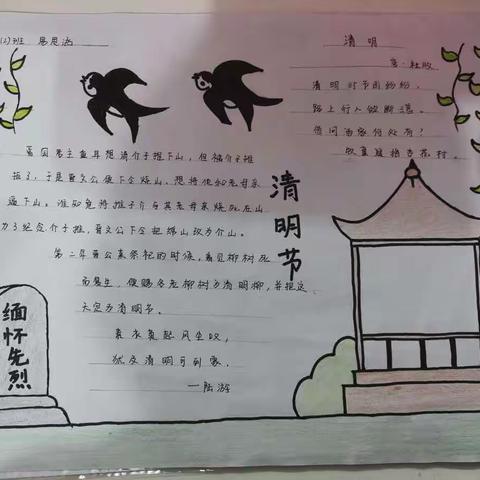 (2)班 易思涵
清明
唐·杜牧
清明时节雨纷纷,
路上行人欲断魂。
借问酒家何处有?
牧童遥指杏花村。
晋国君主重耳想请介子推下山,但被介子推
拒了,于是晋文公便下令烧山,想将他和老母亲
逼下山。谁知竟将推子介与其老母亲烧死在山
为了纪念介子推,晋文公下令把绵山改为介山。
第二年晋公素祭祀的时候,看见柳树死
而复生,便赐冬老柳树为清明柳,并把这
天定为清明节。
素衣莫起风尘叹,
犹及清明可到家。
—陆游
清明节
缅怀先烈